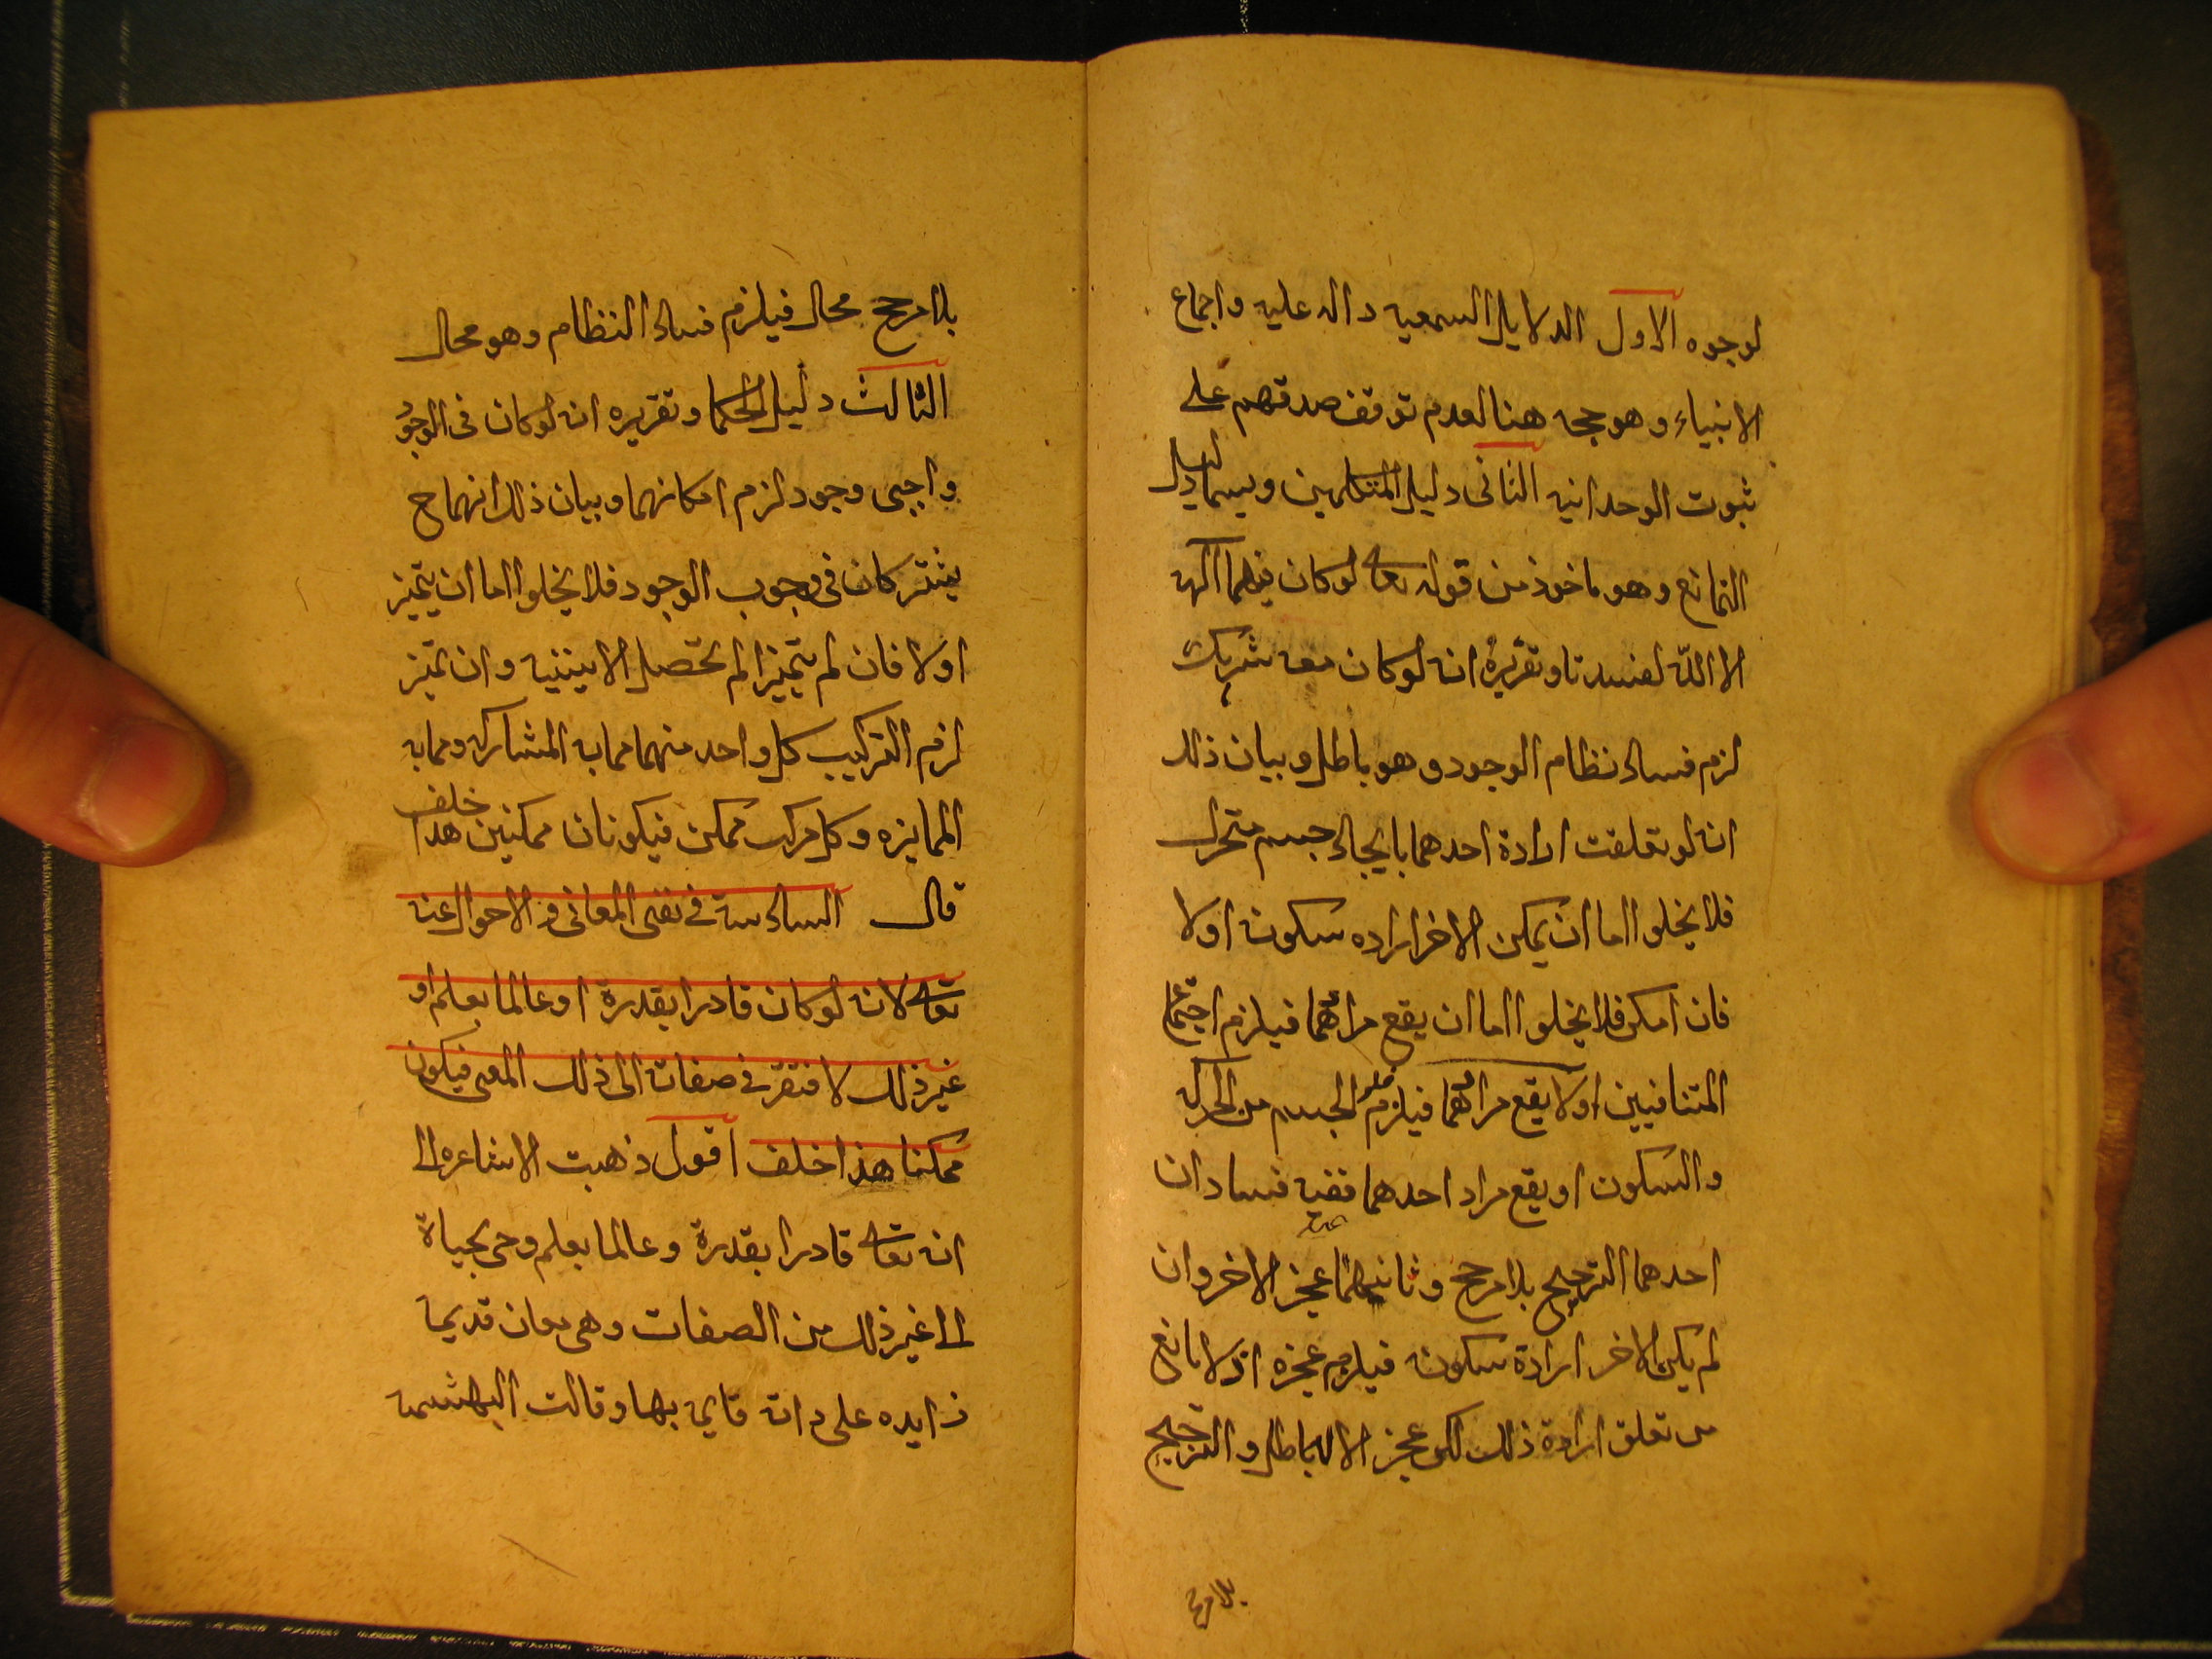 لوجوه الاول الدلايل السمعيه داله عليه واجماع
الانبياء وهو حجه هنا لعدم توقف صدقهم على
ثبوت الوحدانيه الثانى دليل المتكلمين ويسما دليل
التمانع وهو ماخوذ من قوله تعالى لوكان فيهما الهه
الا الله لفسدتا وتقريره انه لوكان معه شريك
لزم فساد نظام الوجود وهو باطل وبيان ذلك
انه لو تعلقت ارادة احدهما بايجاد جسم متحرك
فلا يخلوا اما ان يمكن الاخر اراده سكونه اولا
فان امكن فلا يخلوا اما ان يقع مرادهما فيلزم اجتماع
المتنافيين اولا يقع مرادهما فيلزم خلو الجسم من الحركه
والسكون او يقع مراد احدهما ففيه فسادان
احدهما الترجيح بلا مرجح وثانيهما عجز الاخر وان
لم يكن الاخر ارادة سكونه فيلزم عجزه اذ لا مانع
من تعلق ارادة ذلك لكن عجز الاله باطل والترجيح
بلا مرجح
بلا مرجح محال فيلزم فساد النظام وهو محال
الثالث دليل الحكما وتقريره انه لوكان فى الوجود
واجبى وجود لزم امكانهما وبيان ذلك انهما ح
يشتركان فى وجوب الوجود فلا يخلوا اما ان يتميز
اولا فان لم يتميزا لم تحصل الاثينيه وان تميز
لزم التركيب كل واحد منهما مما به المشاركه ومما به
الممايزه وكل مركب ممكن فيكونان ممكنين هذا خلف
قال السادسة فى نفى المعانى والاحوال عنه
تعالى لانه لوكان قادرا بقدرة او عالما بعلم او
غير ذلك لافتقر فى صفاته الى ذلك المعنى فيكون
ممكنا هذا خلف اقول ذهبت الاشاعره الى
انه تعالى قادرا بقدرة وعالما بعلم وحى بحياة
الى غير ذلك من الصفات وهى معان قديما
زايده على ذاته قايمه بها وقالت البهشميه